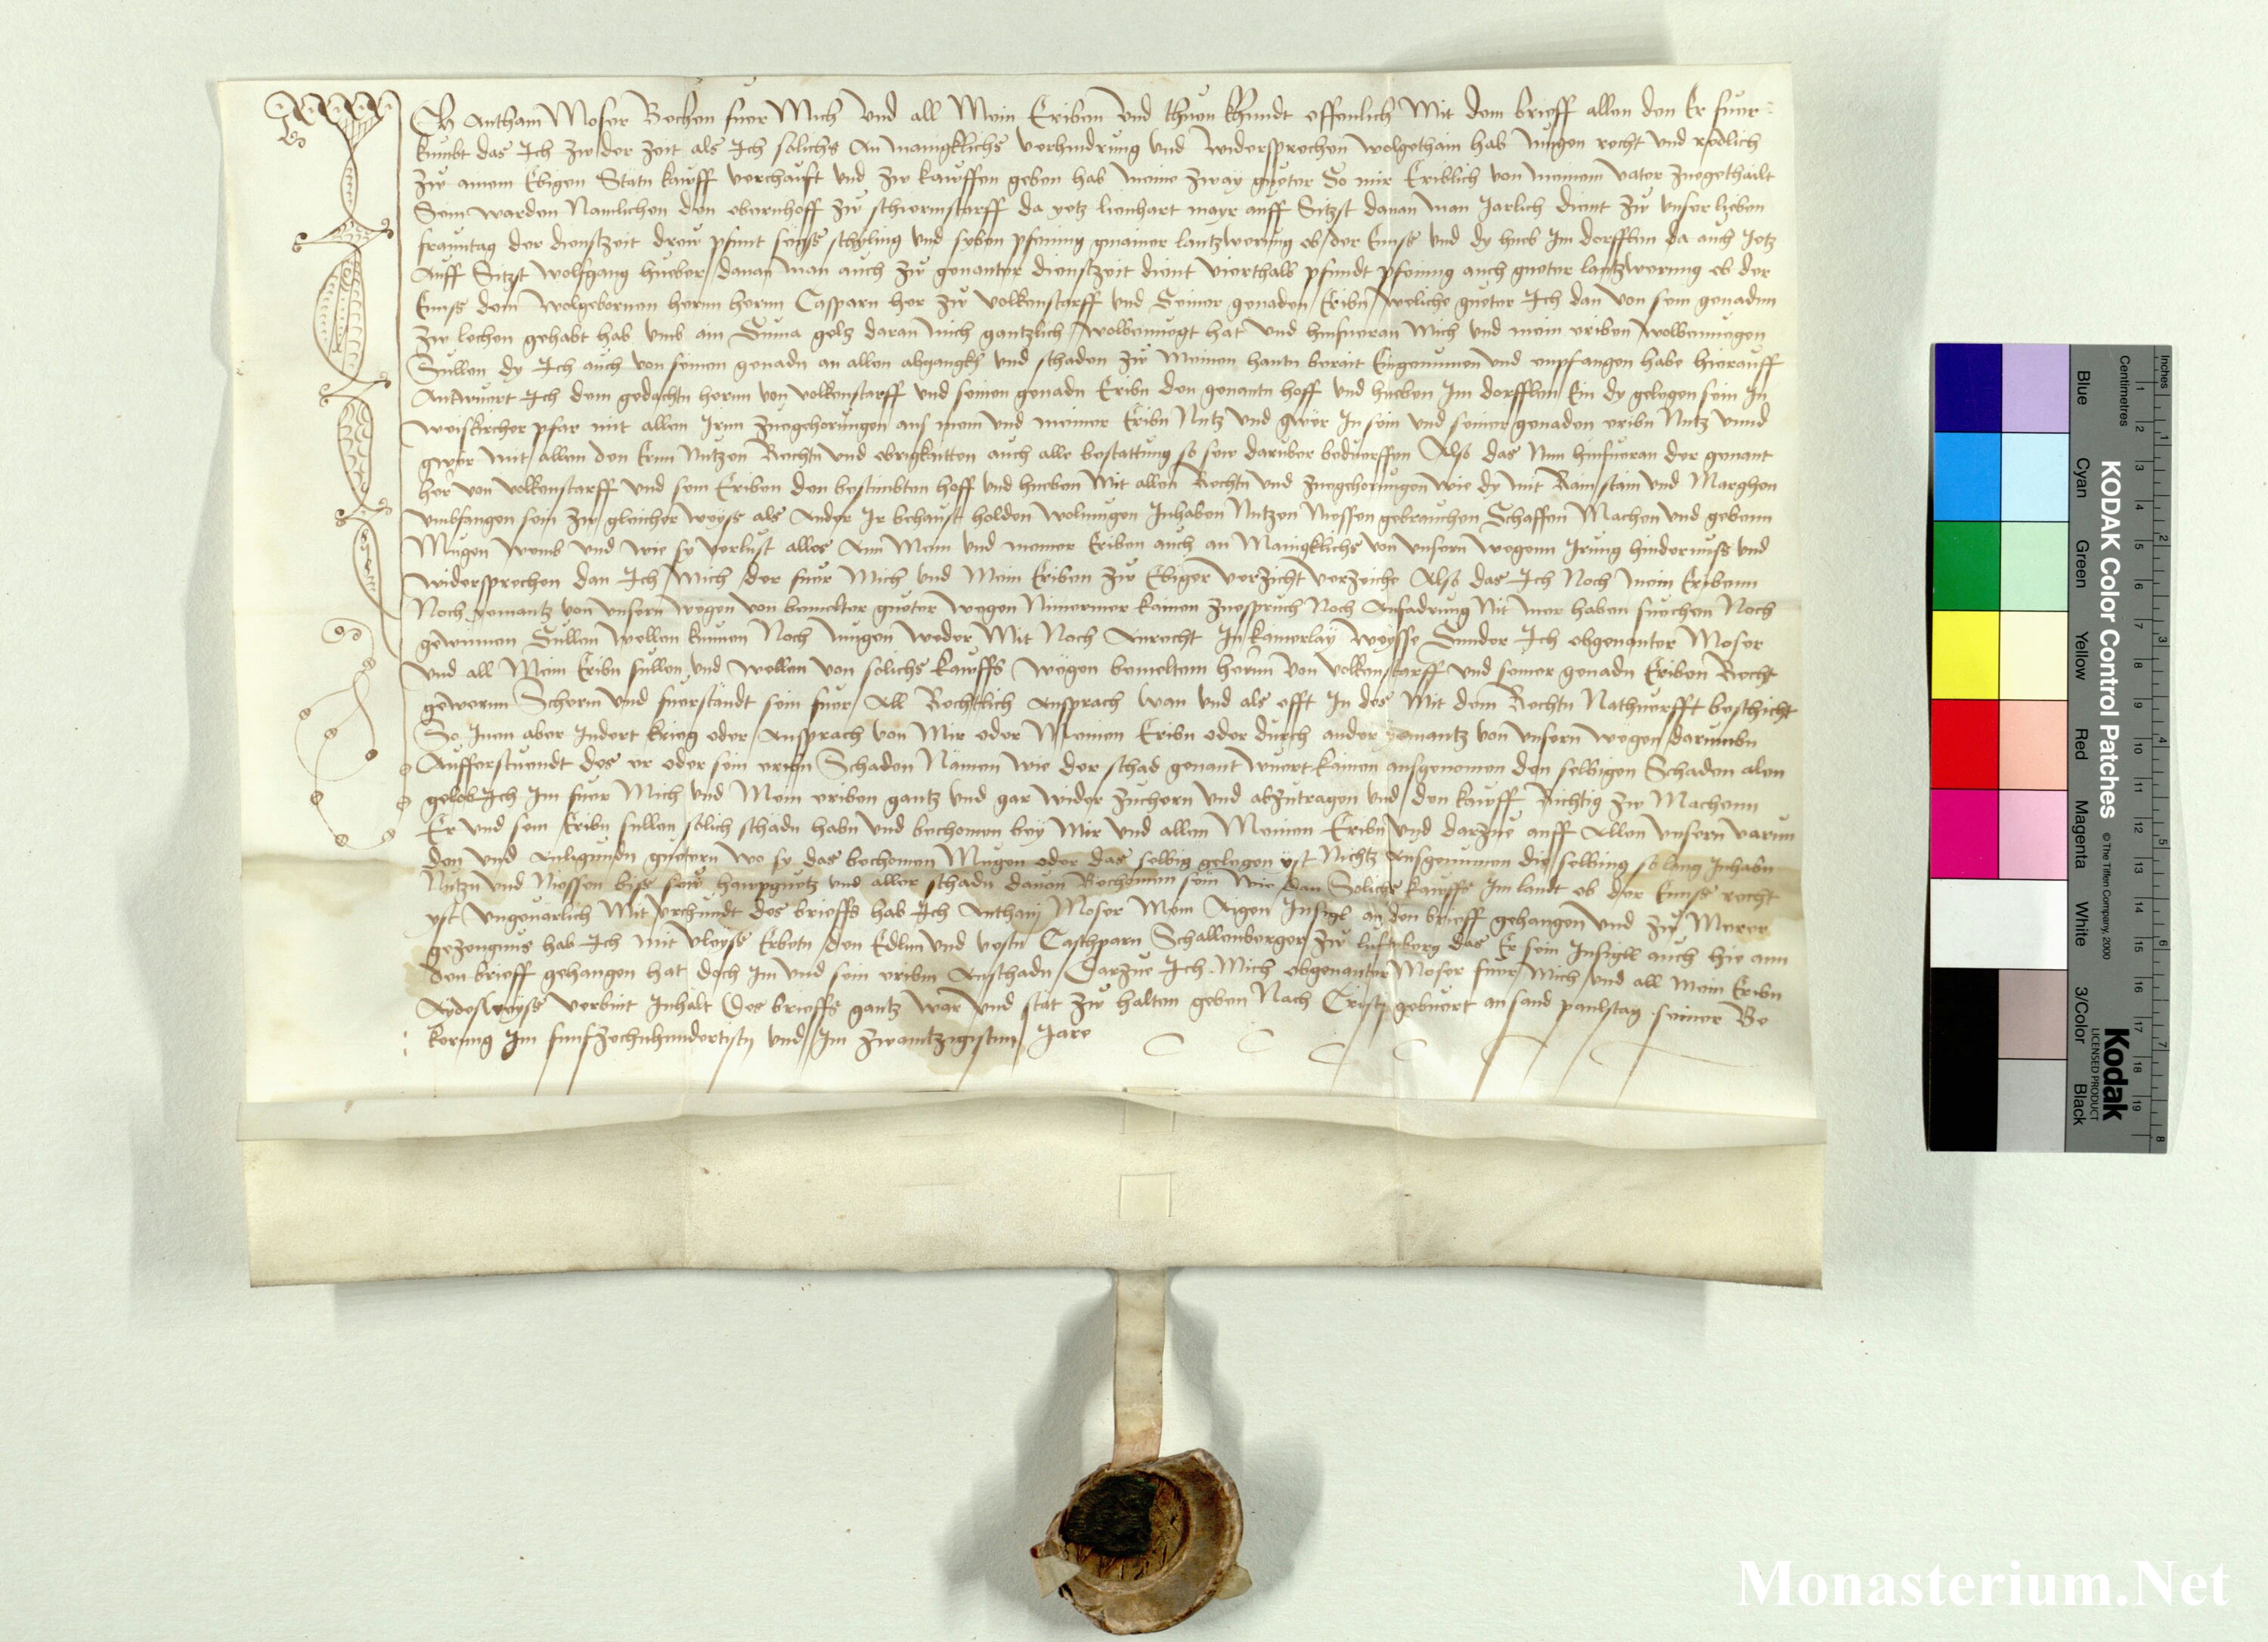 Ich Anthani Moser Bechen fuer Mich Vnd all Mein Eriben Vnd thuen khundt offenlich Mit dem brieff allen den Er fuer-
kumbt das Ich zw der Zeit als Ich solichs An mainigklichs Verhindrung Vnd widersprechen wolgethain hab mugen recht Vnd redlich
zw ainem Ebigen Statn kauff verchaufft Vnd zw kauffen geben hab meine zway gueter So mir Eriblich von meinem vater zuegethailt
Sein warden Namlichen den obernhoff zw da yetz lienhart mayr auff Sitzt danan man Jarlich dient zw vnser lieben
frauntag der dienstzeit drew pfunt sechss schyling Vnd syben pfening gmainer lantzwerung ob der Enns Vnd dy hueb Im dorfflein da auch Jetz
Auff Sitzt wolfgang hueber danan man auch zw genanter dienstzeit dient vierthalb pfundt pfening auch gueter lantzwerung ob der
Enns dem wolgebornen hernn hernn Casparn her zw Volkenstarff Vnd Seiner genaden Eribn weliche gueter Ich dan von sein genaden
zw lechen gehabt hab Vmb ain Suma geltz daran mich gantzlich wolbenuegt hat Vnd hinfueran Mich Vnd mein eriben wolbenuegen
Sullen dy Ich auch von seinen genadn an allen abgangkh Vnd schaden zw Meinen hantn berait Eingenumen Vnd empfangen habe hierauff
Antwuert Ich dem gedachtn hernn von volkenstarff Vnd seinen genadn Eribn den genantn hoff Vnd hueben Im dorfflein Ein dy gelegen sein In
weiskircher pfar mit allen Irnn zuegehorungen aus mein Vnd meiner Eribn Nutz Vnd gwer In sein Vnd seiner genaden eribn Nutz vnnd
gwer mit allen den Ernn Nutzen Rechtn Vnd obrigkaitten auch alle bestattung so sew daruber beduerffen Also das Nun hinfueran der genant
her von volkenstarff Vnd sein Eriben den bestimbten hoff Vnd hueben Mit allen Rechtn Vnd zuegehorungen wie dy mit Rain stain Vnd Marghen
Vmbfangen sein zw gleicher weyss als Ander Ir behaust holden wolmugen Inhaben Nutzen Niessen gebrauchen Schaffen Machen Vnd gebenn
Mugen wemb Vnd wie sy verlust alles Ann Mein Vnd meiner Eriben auch an Mainigklichs von vnsern wegenn Irung hindernuss Vnd
widersprechen dan Ich Mich der fuer Mich Vnd Mein Eriben zw Ebiger verzicht verzeiche Also das Ich Noch mein Eribenn
Noch yemantz von vnsern wegen von bemelter gueter wegen Nimermer kainen zuespruch Noch Anfadrung Nit mer haben suechen Noch
gewinnen Sullen wellen kunnen Noch mugen weder Mit Noch Anrecht In kainerlay weysse Sunder Ich obgenanter Moser
Vnd all Mein Eribn sullen Vnd wellen von solichs kauffs wegen bemeltem hernn von volkenstarff Vnd seiner genadn Eriben Recht
gewernn Scherm Vnd fuerstandt sein fuer All Rechtlich Ansprach wan Vnd als offt In des Mit dem Rechtn Nathuerfft beschicht
So Inen aber Indert krieg oder Ansprach von Mir oder Meinen Eribn oder durch ander yemantz von vnsern wegen darumbn
Aufferstuendt des er oder sein eribn Schaden Namen wie der schad genant wuert kainen ausgenomen den selbigen Schaden alen
gelob Ich Im fuer Mich Vnd Mein eriben gantz Vnd gar wider zuchern Vnd abzutragen Vnd den kauff Richtig zw Machenn
Er Vnd sein Eribn sullen solich schadn habn Vnd bechomen bey Mir Vnd allen Meinen Eribn Vnd darzue auff Allen vnsern varun
den Vnd Anligundn guetern wo sy das bechomen Mugen oder das selbig gelegen yst Nichtz Ausgenumen die selbing so lang Inhabn
Nutzn Vnd Niessen biss sew haupguetz Vnd aller schadn dauon Bechomen sein wie dan Solichs kauffs Im landt ob der Enns recht
yst Vngeuarlich Mit vrchundt des brieffs hab Ich Anthani Moser Mein Aigen Insigl an den brieff gehangen Vnd zw Merer
gezeugnus hab Ich mit vleyss Erbetn den Edlen Vnd vestn Casthparn Schallenberger zw luftnberg das Er sein Insigll auch hie ann
den brieff gehangen hat doch Im Vnd sein eribm Anschadn Darzue Ich Mich obgenanter Moser fuer Mich Vnd all Mein Eribn
Aydesweyss verbint Inhalt des brieffs gantz war Vnd stat zw halten geben Nach Cristj gebuert an sand paulstag seiner Be
kerung Im funfzechnhundertistn Vnd Im zwaintzigisten Jare
KODAK Color Control Patches
© The Tiffen Company, 2000
Kodak
LICENSED PRODUCT
Inches
Centimetres
1 2 3 4 5 6 7 8
1 2 3 4 5 6 7 8 9 10 11 12 13 14 15 16 17 18 19
Blue Cyan Green Yellow Red Magenta White 3/Color Black
Monasterium.Net